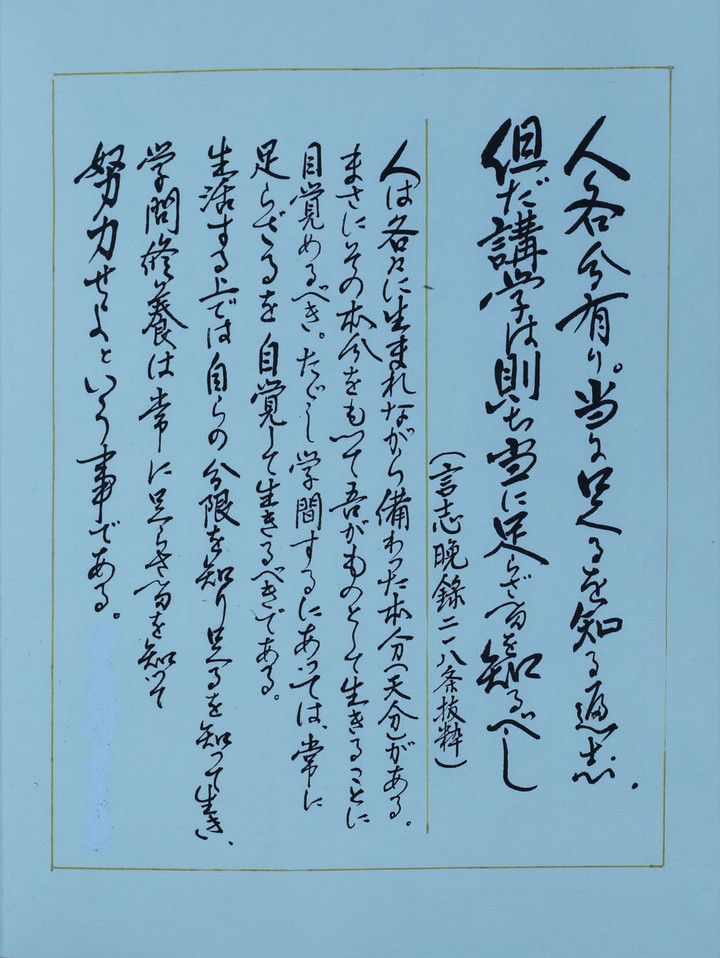 人各分有り。当に足るを知る適し。
但だ講学は則ち当に足らざるを知るべし
(言志晩録二一八条抜粋)
人は各々に生まれながら備わった本分(天分)がある。
まさにその本分をもって吾がものとして生きることに
目覚めるべき。ただし学問するにあっては、常に
足らざるを自覚して生きるべきである。
生活する上では自らの分限を知り足るを知って生き、
学問修養は常に足らざるを知って
努力せよという事である。